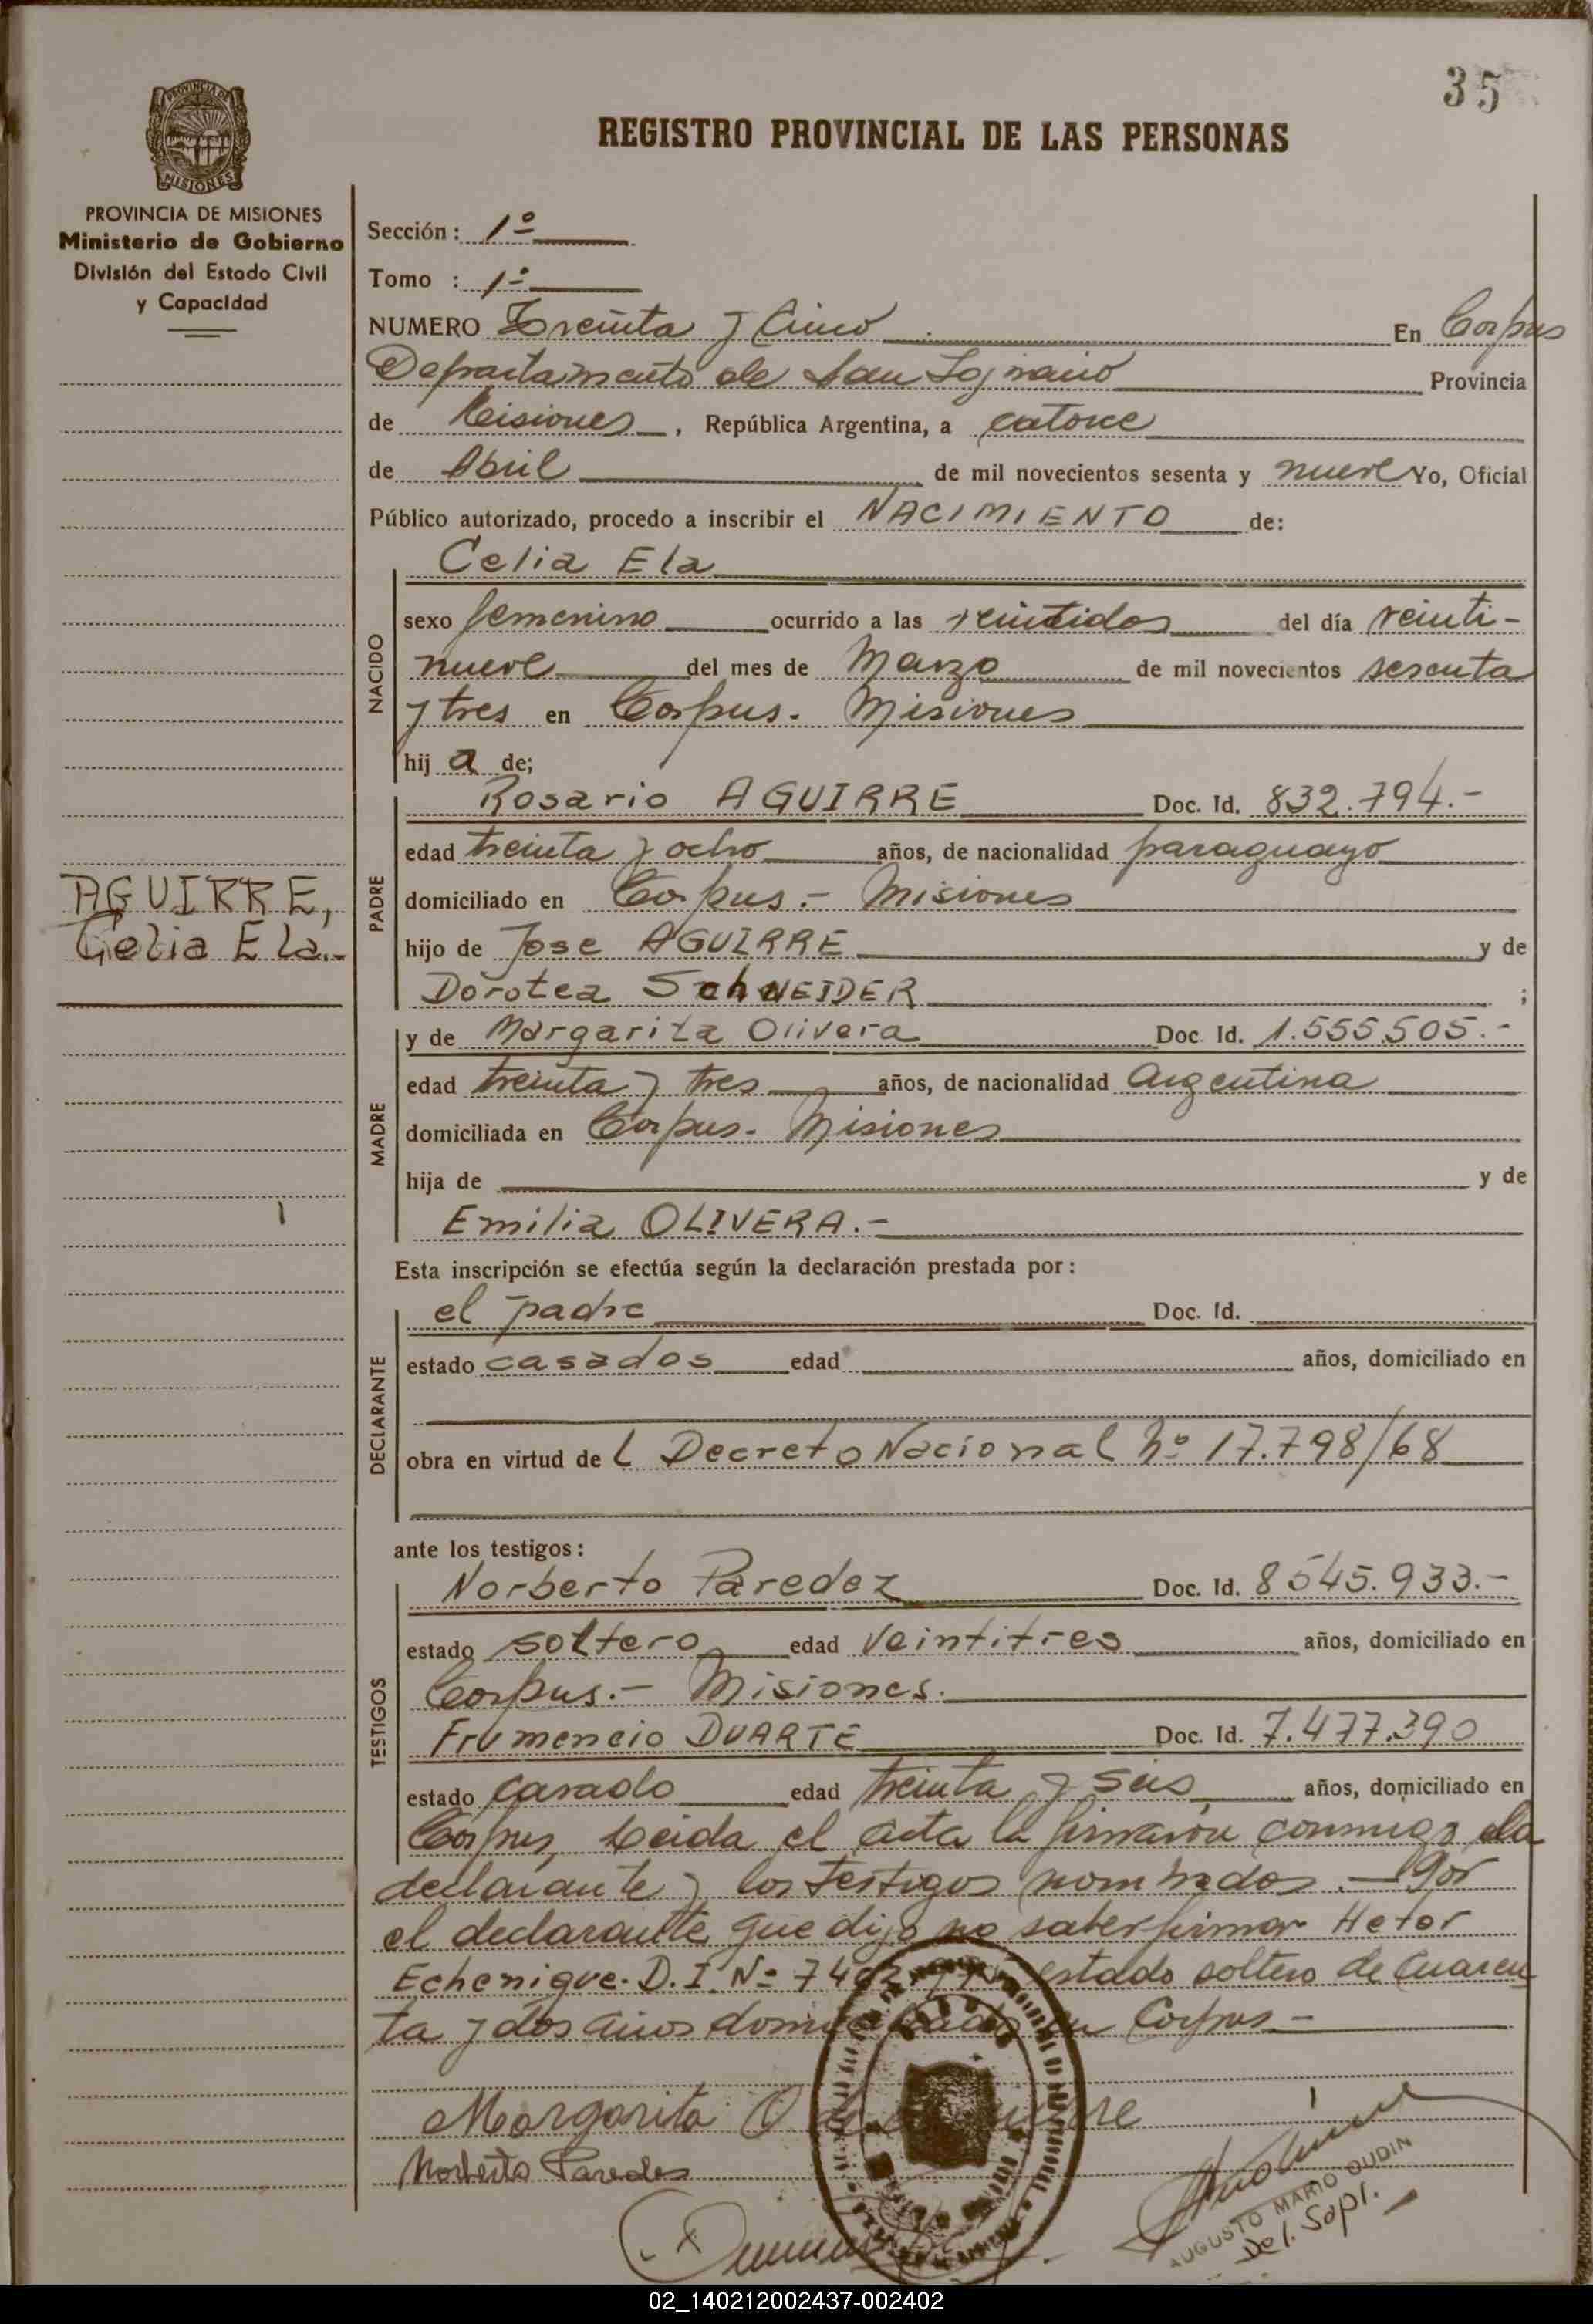 35
PROVINCIA DE
MISIONES
REGISTRO PROVINCIAL DE LAS PERSONAS
PROVINCIA DE MISIONES
Ministerio de Gobierno
División del Estado Civil
y Capacidad
AGUIRRE,
Celia Ela.-
Sección: 1º
Tomo : 1º
NUMERO Treinta y Cinco En Corpus
Departamento de San Ignacio Provincia
de Misiones, República Argentina, a catorce
de Abril de mil novecientos sesenta y nueve Yo, Oficial
Público autorizado, procedo a inscribir el NACIMIENTO de:
NACIDO
Celia Ela
sexo femenino ocurrido a las veintidos del día veinti-
nueve del mes de Marzo de mil novecientos sesenta
y tres en Corpus. Misiones
hij a de;
PADRE
Rosario AGUIRRE Doc. Id. 832.794.-
edad treinta y ocho años, de nacionalidad paraguayo
domiciliado en Corpus.- Misiones
hijo de Jose AGUIRRE y de
Dorotea SchNEIDER ;
MADRE
y de Margarita Olivera Doc. Id. 1.555.505.-
edad treinta y tres años, de nacionalidad Argentina
domiciliada en Corpus. Misiones
hija de y de
Emilia OLIVERA.-
Esta inscripción se efectúa según la declaración prestada por:
DECLARANTE
el padre Doc. Id.
estado casados edad años, domiciliado en
obra en virtud de L Decreto Nacional Nº 17.798/68
ante los testigos:
TESTIGOS
Norberto Paredez Doc. Id. 8545.933.-
estado soltero edad veintitres años, domiciliado en
Corpus.- Misiones.
Frumencio DUARTE Doc. Id. 7.477.390
estado casado edad treinta y seis años, domiciliado en
Corpus, Leida el acta la firmaron conmigo ela
declarante y los testigos nombrados.- Por
el declarante que dijo no saber firmar Hetor
Echenique. D.I. Nº estado soltero de cuaren
ta y dos años domiciliado en Corpus-
Margarita O
Norberto Paredes
AUGUSTO MARIO OUDIN
Del. Sapl.
02_140212002437-002402